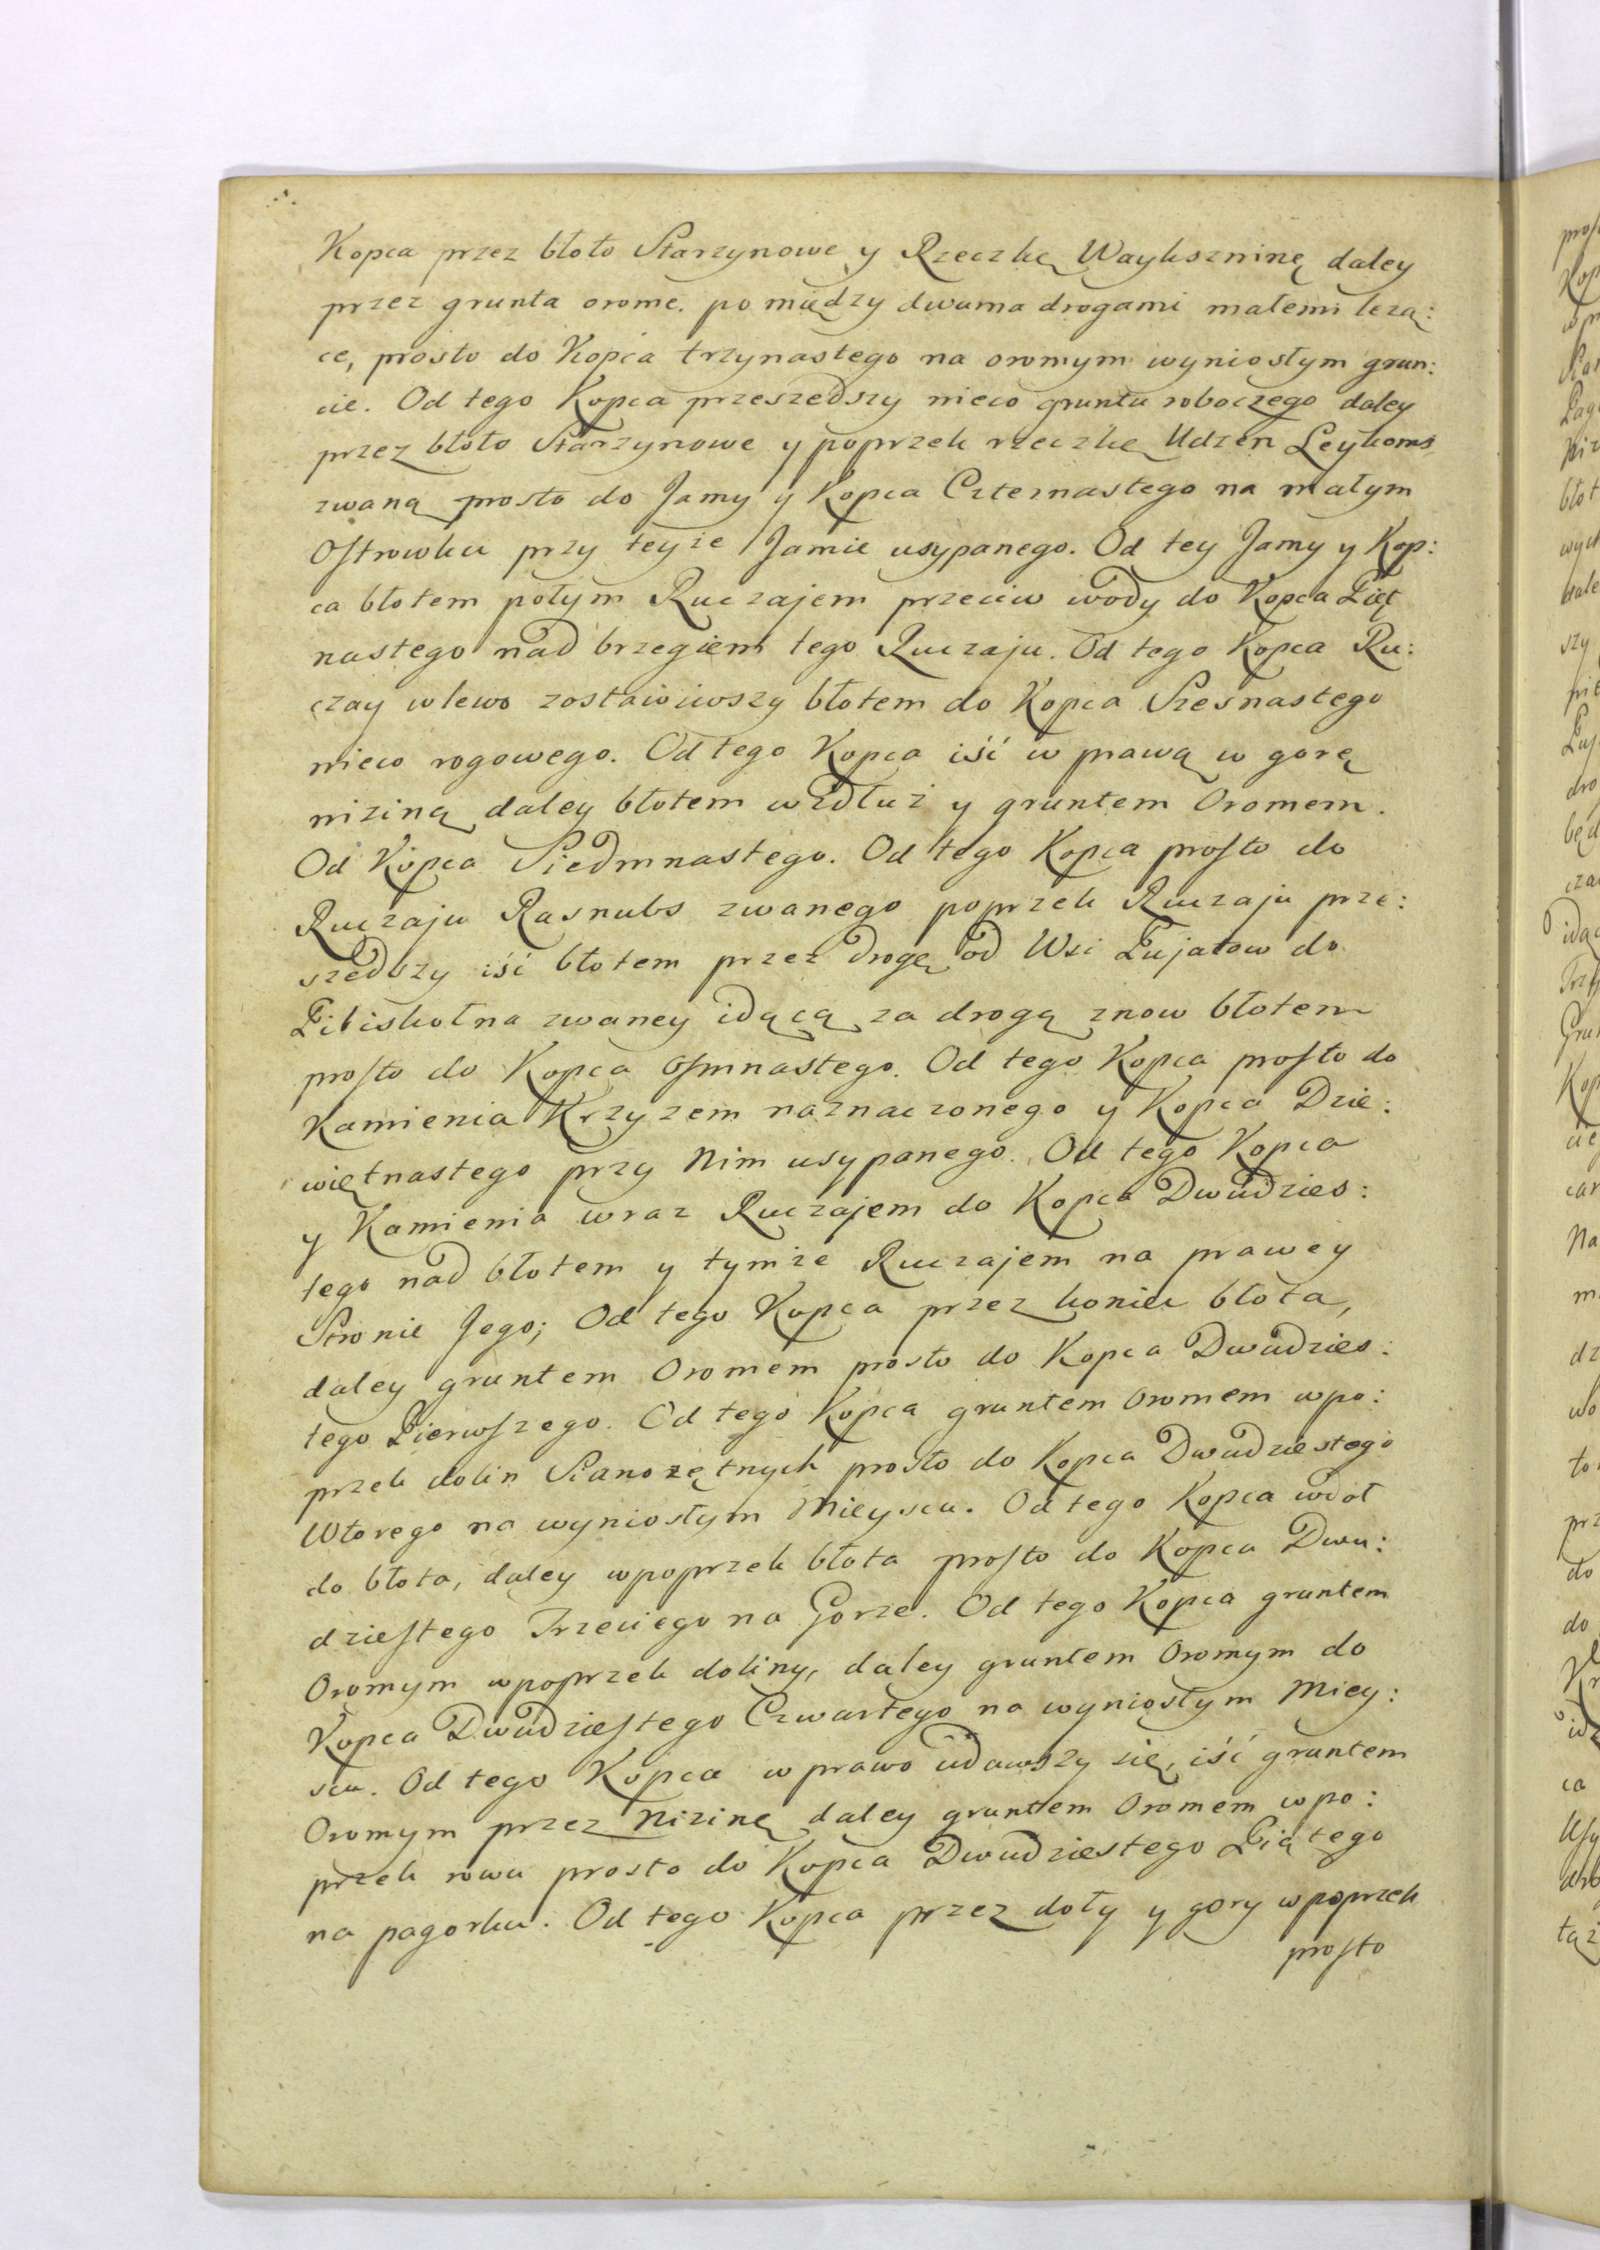 Kopca przez błoto Starzynowe y Rzeczkę Waykszninę daley
przez grunta orome. pomiędzy dwuma drogami małemi leżą:
ce, prosto do Kopca trzynastego na oromym wyniosłym grun:
cie. Od tego Kopca przeszedszy nieco gruntu roboczego daley
przez błoto Starzynowe y poprzek rzeczkę Udzen Leykoms
zwaną prosto do Jamy y Kopca Czternastego na małym
Ostrowku przy teyże Jamie usypanego. Od tey Jamy y Kop:
ca błotem połym Ruczajem przeciw wody do Kopca Pięt
nastego nad brzegiem tego Ruczaju. Od tego Kopca Ru:
czay wlewo zostawiwszy błotem do Kopca Szesnastego
nieco rogowego. Od tego Kopca iść w prawą w gorę
niziną daley błotem wzdłuż y gruntem Oromem.
Od Kopca Siedmnastego. Od tego Kopca prosto do
Ruczaju Rasnubs zwanego poprzek Ruczaju prze:
szedszy iść błotem przez drogę od Wsi Pujatow do
Pibiskołna zwaney idącą za drogą znow błotem
prosto do Kopca Osmnastego. Od tego Kopca prosto do
Kamienia Krzyzem naznaczonego y Kopca Dzie:
więtnastego przy Nim usypanego. Od tego Kopca
y Kamienia wraz Ruczajem do Kopca Dwudzies:
tego nad błotem y tymże Ruczajem na prawey
Stronie Jego; Od tego Kopca przez koniec błota,
daley gruntem Oromem prosto do Kopca Dwudzies:
tego Pierwszego. Od tego Kopca gruntem Oromem wpo:
przek dolin Sianożętnych prosto do Kopca Dwudziestego
Wtorego na wyniosłym Mieyscu. Od tego Kopca wdoł
do błota, daley wpoprzek błota prosto do Kopca Dwu:
dziestego Trzeciego na Gorze. Od tego Kopca gruntem
Oromym wpoprzek doliny, daley gruntem Oromym do
Kopca Dwudziestego Czwartego na wyniosłym Miey:
scu. Od tego Kopca w prawo udawszy się, iść gruntem
Oromym przez Nizinę daley gruntem Oromem wpo:
przek rowu prosto do Kopca Dwudziestego Piątego
na pagorku. Od tego Kopca przez doły y gory wpoprzek
prosto